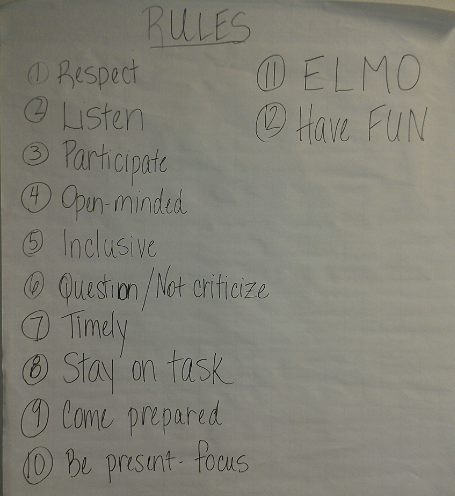 RULES
① Respect
② Listen
③ Participate
④ Open-minded
⑤ Inclusive
⑥ Question/Not criticize
⑦ Timely
⑧ Stay on task
⑨ Come prepared
⑩ Be present - focus
⑪ ELMO
⑫ Have FUN